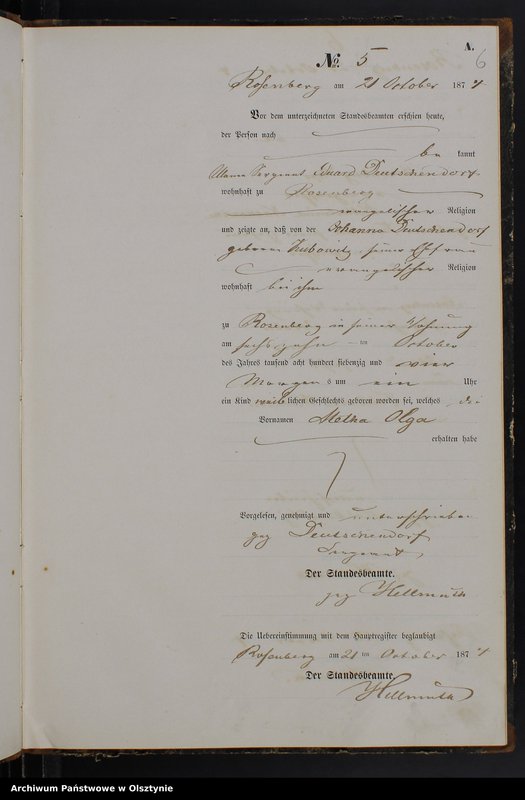 A.
6
No. 5
Rosenberg am 21 October 1874
Vor dem unterzeichneten Standesbeamten erschien heute,
der Person nach
be kannt
Sergeant Eduard Deutschendorf
wohnhaft zu Rosenberg
evangelischer Religion
und zeigte an, daß von der Johanna Deutschendorf
geborene seiner Ehefrau
evangelischer Religion
wohnhaft bei ihm
zu Rosenberg in seiner Wohnung
am sechszehn ten October
des Jahres tausend acht hundert siebenzig und vier
Morgen s um ein Uhr
ein Kind weib lichen Geschlechts geboren worden sei, welches die
Vornamen Olga
erhalten habe
Vorgelesen, genehmigt und unterschrieben
gez Deutschendorf
Sergeant
Der Standesbeamte.
gez Hellmuth
Die Uebereinstimmung mit dem Hauptregister beglaubigt
Rosenberg am 21 ten October 1874
Der Standesbeamte.
Hellmuth
Archiwum Państwowe w Olsztynie